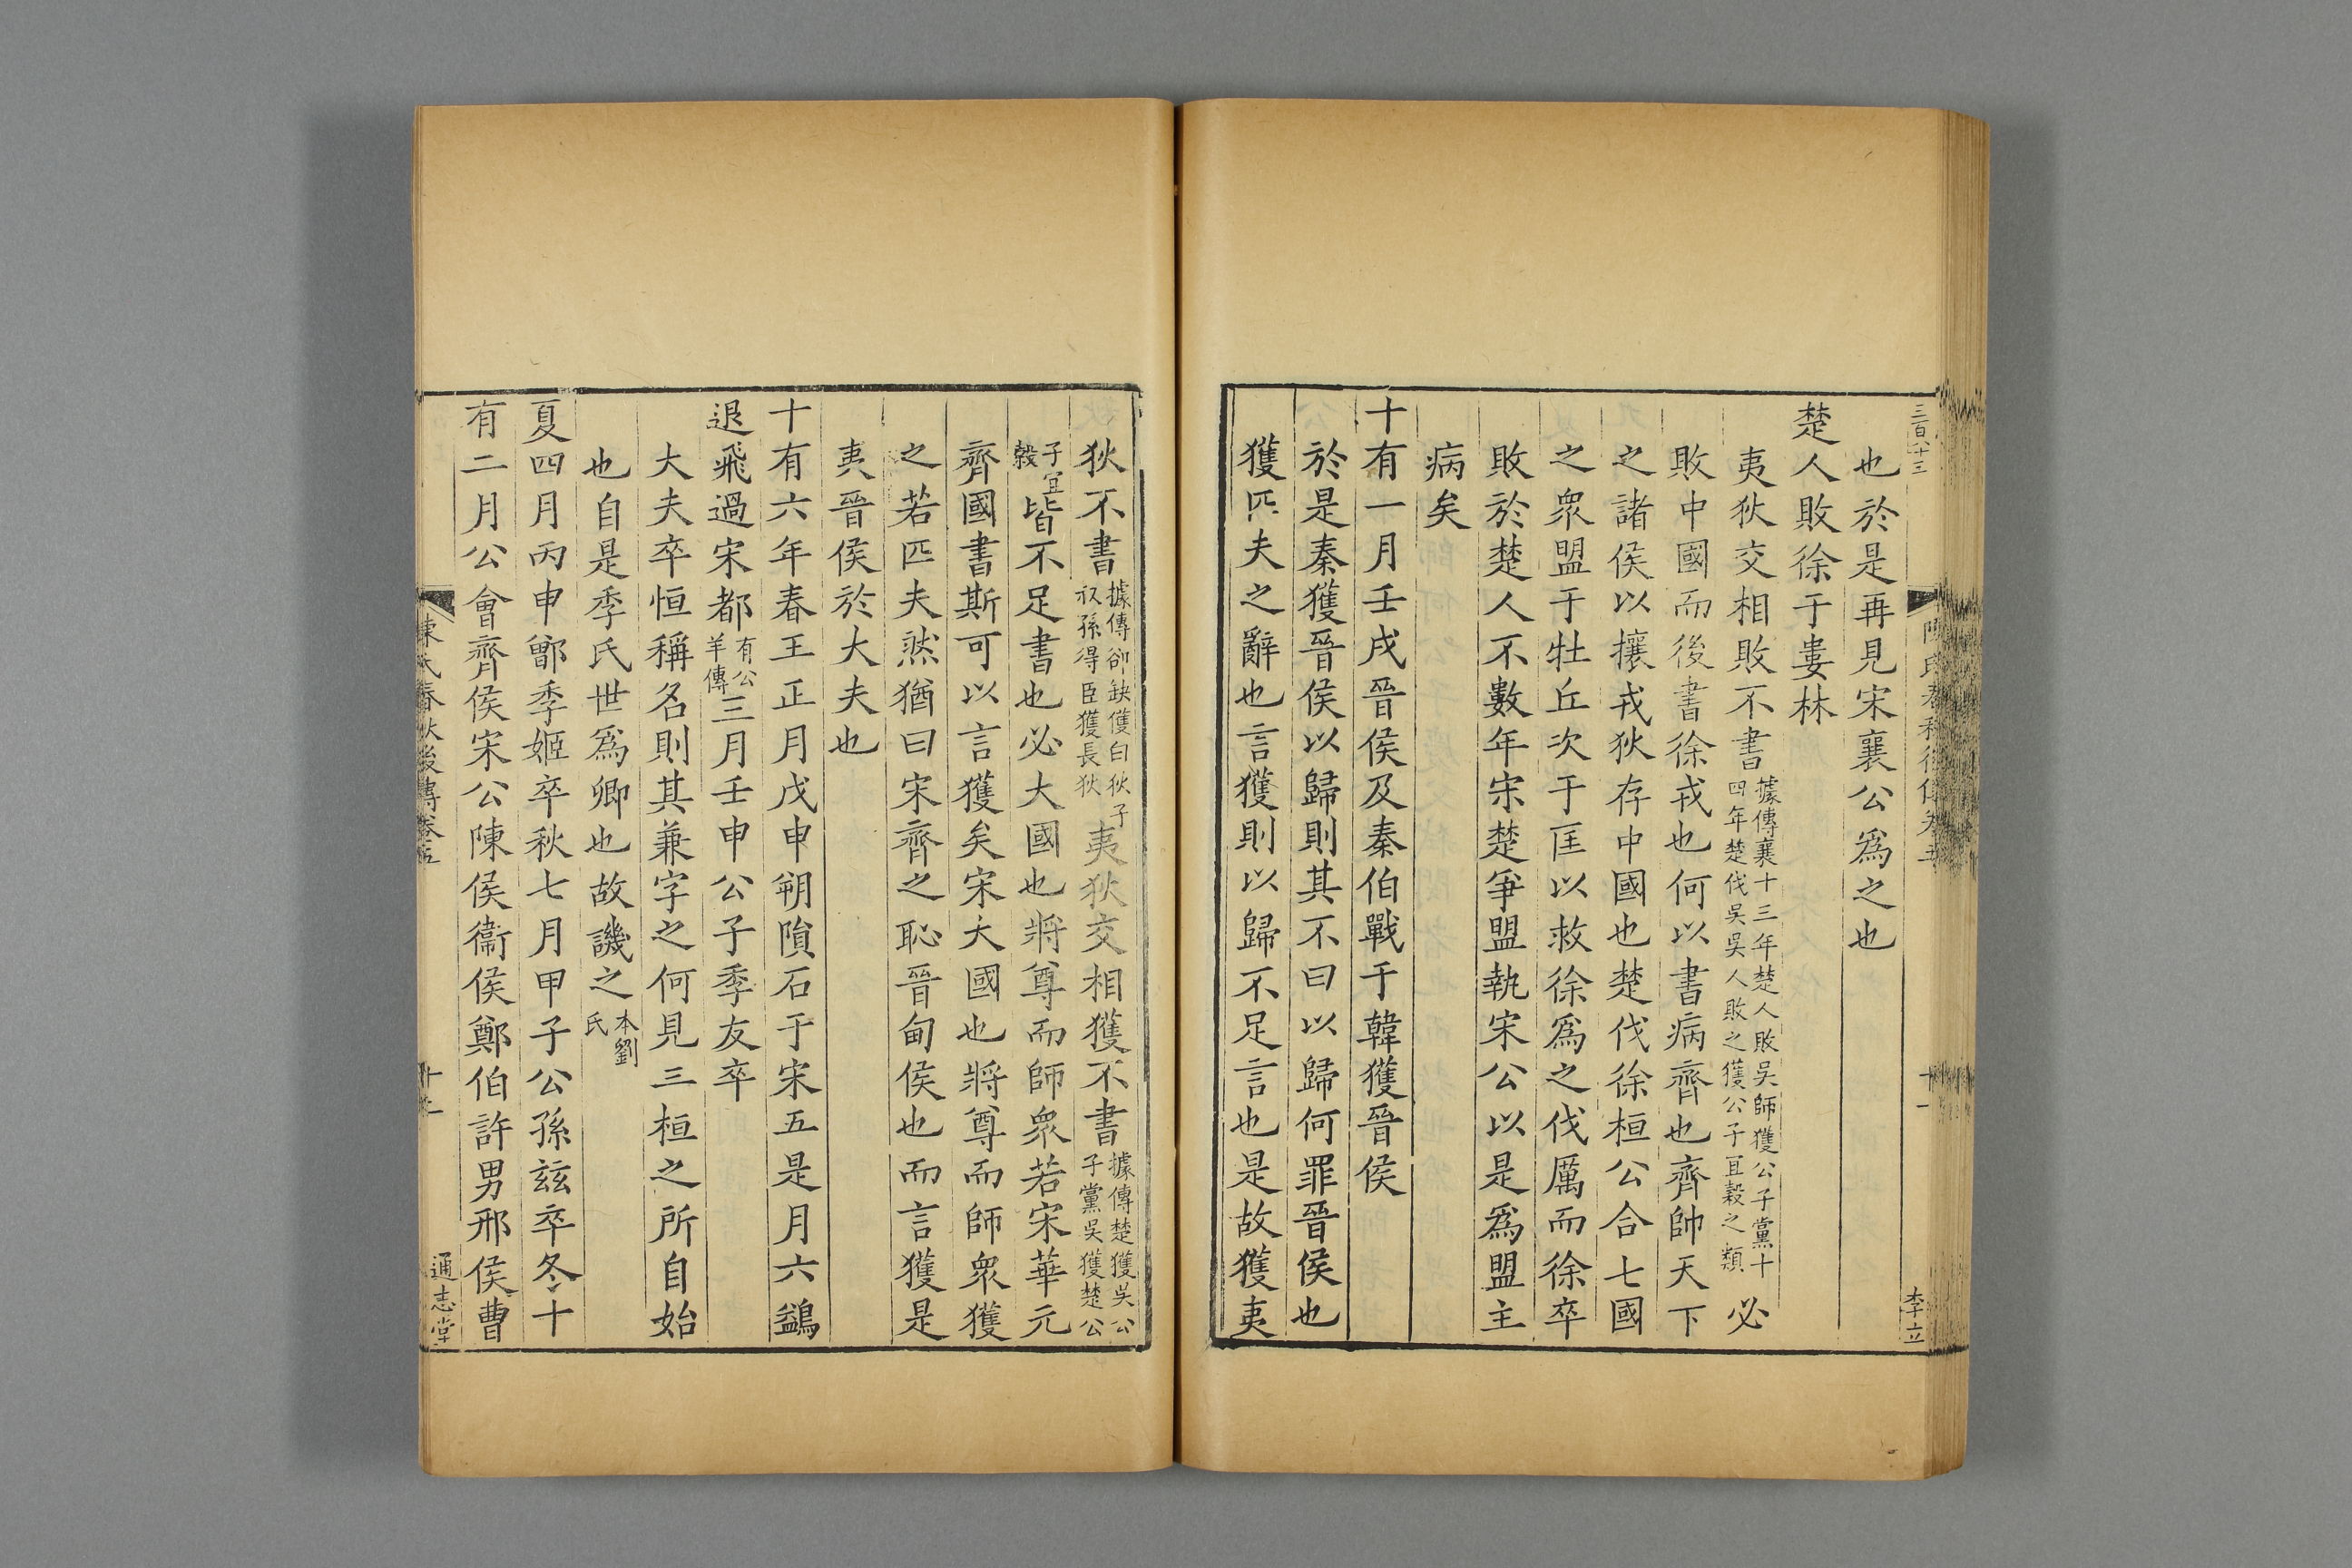 三百八十三
陳氏春秋後傳卷五
十一
李立
也於是再見宋襄公爲之也
楚人敗徐于婁林
夷狄交相敗不書據傳襄十三年楚人敗吳師獲公子黨十四年楚伐吳吳人敗之獲公子宜穀之類必
敗中國而後書徐戎也何以書病齊也齊帥天下
之諸侯以攘戎狄存中國也楚伐徐桓公合七國
之衆盟于牡丘次于匡以救徐爲之伐厲而徐卒
敗於楚人不數年宋楚爭盟執宋公以是爲盟主
病矣
十有一月壬戌晉侯及秦伯戰于韓獲晉侯
於是秦獲晉侯以歸則其不曰以歸何罪晉侯也
獲匹夫之辭也言獲則以歸不足言也是故獲夷
狄不書據傳郤缺獲白狄子叔孫得臣獲長狄夷狄交相獲不書據傳楚獲吳公子黨吳獲楚公
子宜穀皆不足書也必大國也將尊而師衆若宋華元
齊國書斯可以言獲矣宋大國也將尊而師衆獲
之若匹夫然猶曰宋齊之恥晉甸侯也而言獲是
夷晉侯於大夫也
十有六年春王正月戊申朔隕石于宋五是月六鷁
退飛過宋都有公羊傳三月壬申公子季友卒
大夫卒恒稱名則其兼字之何見三桓之所自始
也自是季氏世爲卿也故譏之本劉氏
夏四月丙申鄫季姬卒秋七月甲子公孫玆卒冬十
有二月公會齊侯宋公陳侯衞侯鄭伯許男邢侯曹
陳氏春秋後傳卷五
通志堂